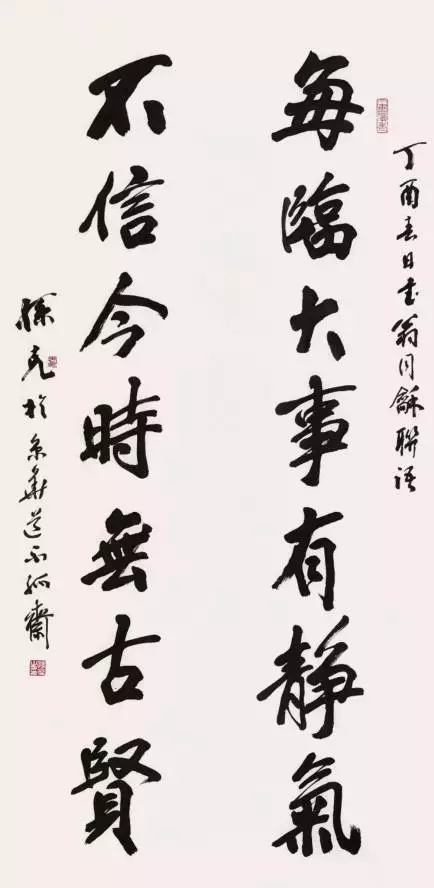 丁酉春日书翁同龢联语
每臨大事有靜氣
不信今時無古賢
孫克於京華道不孤齋